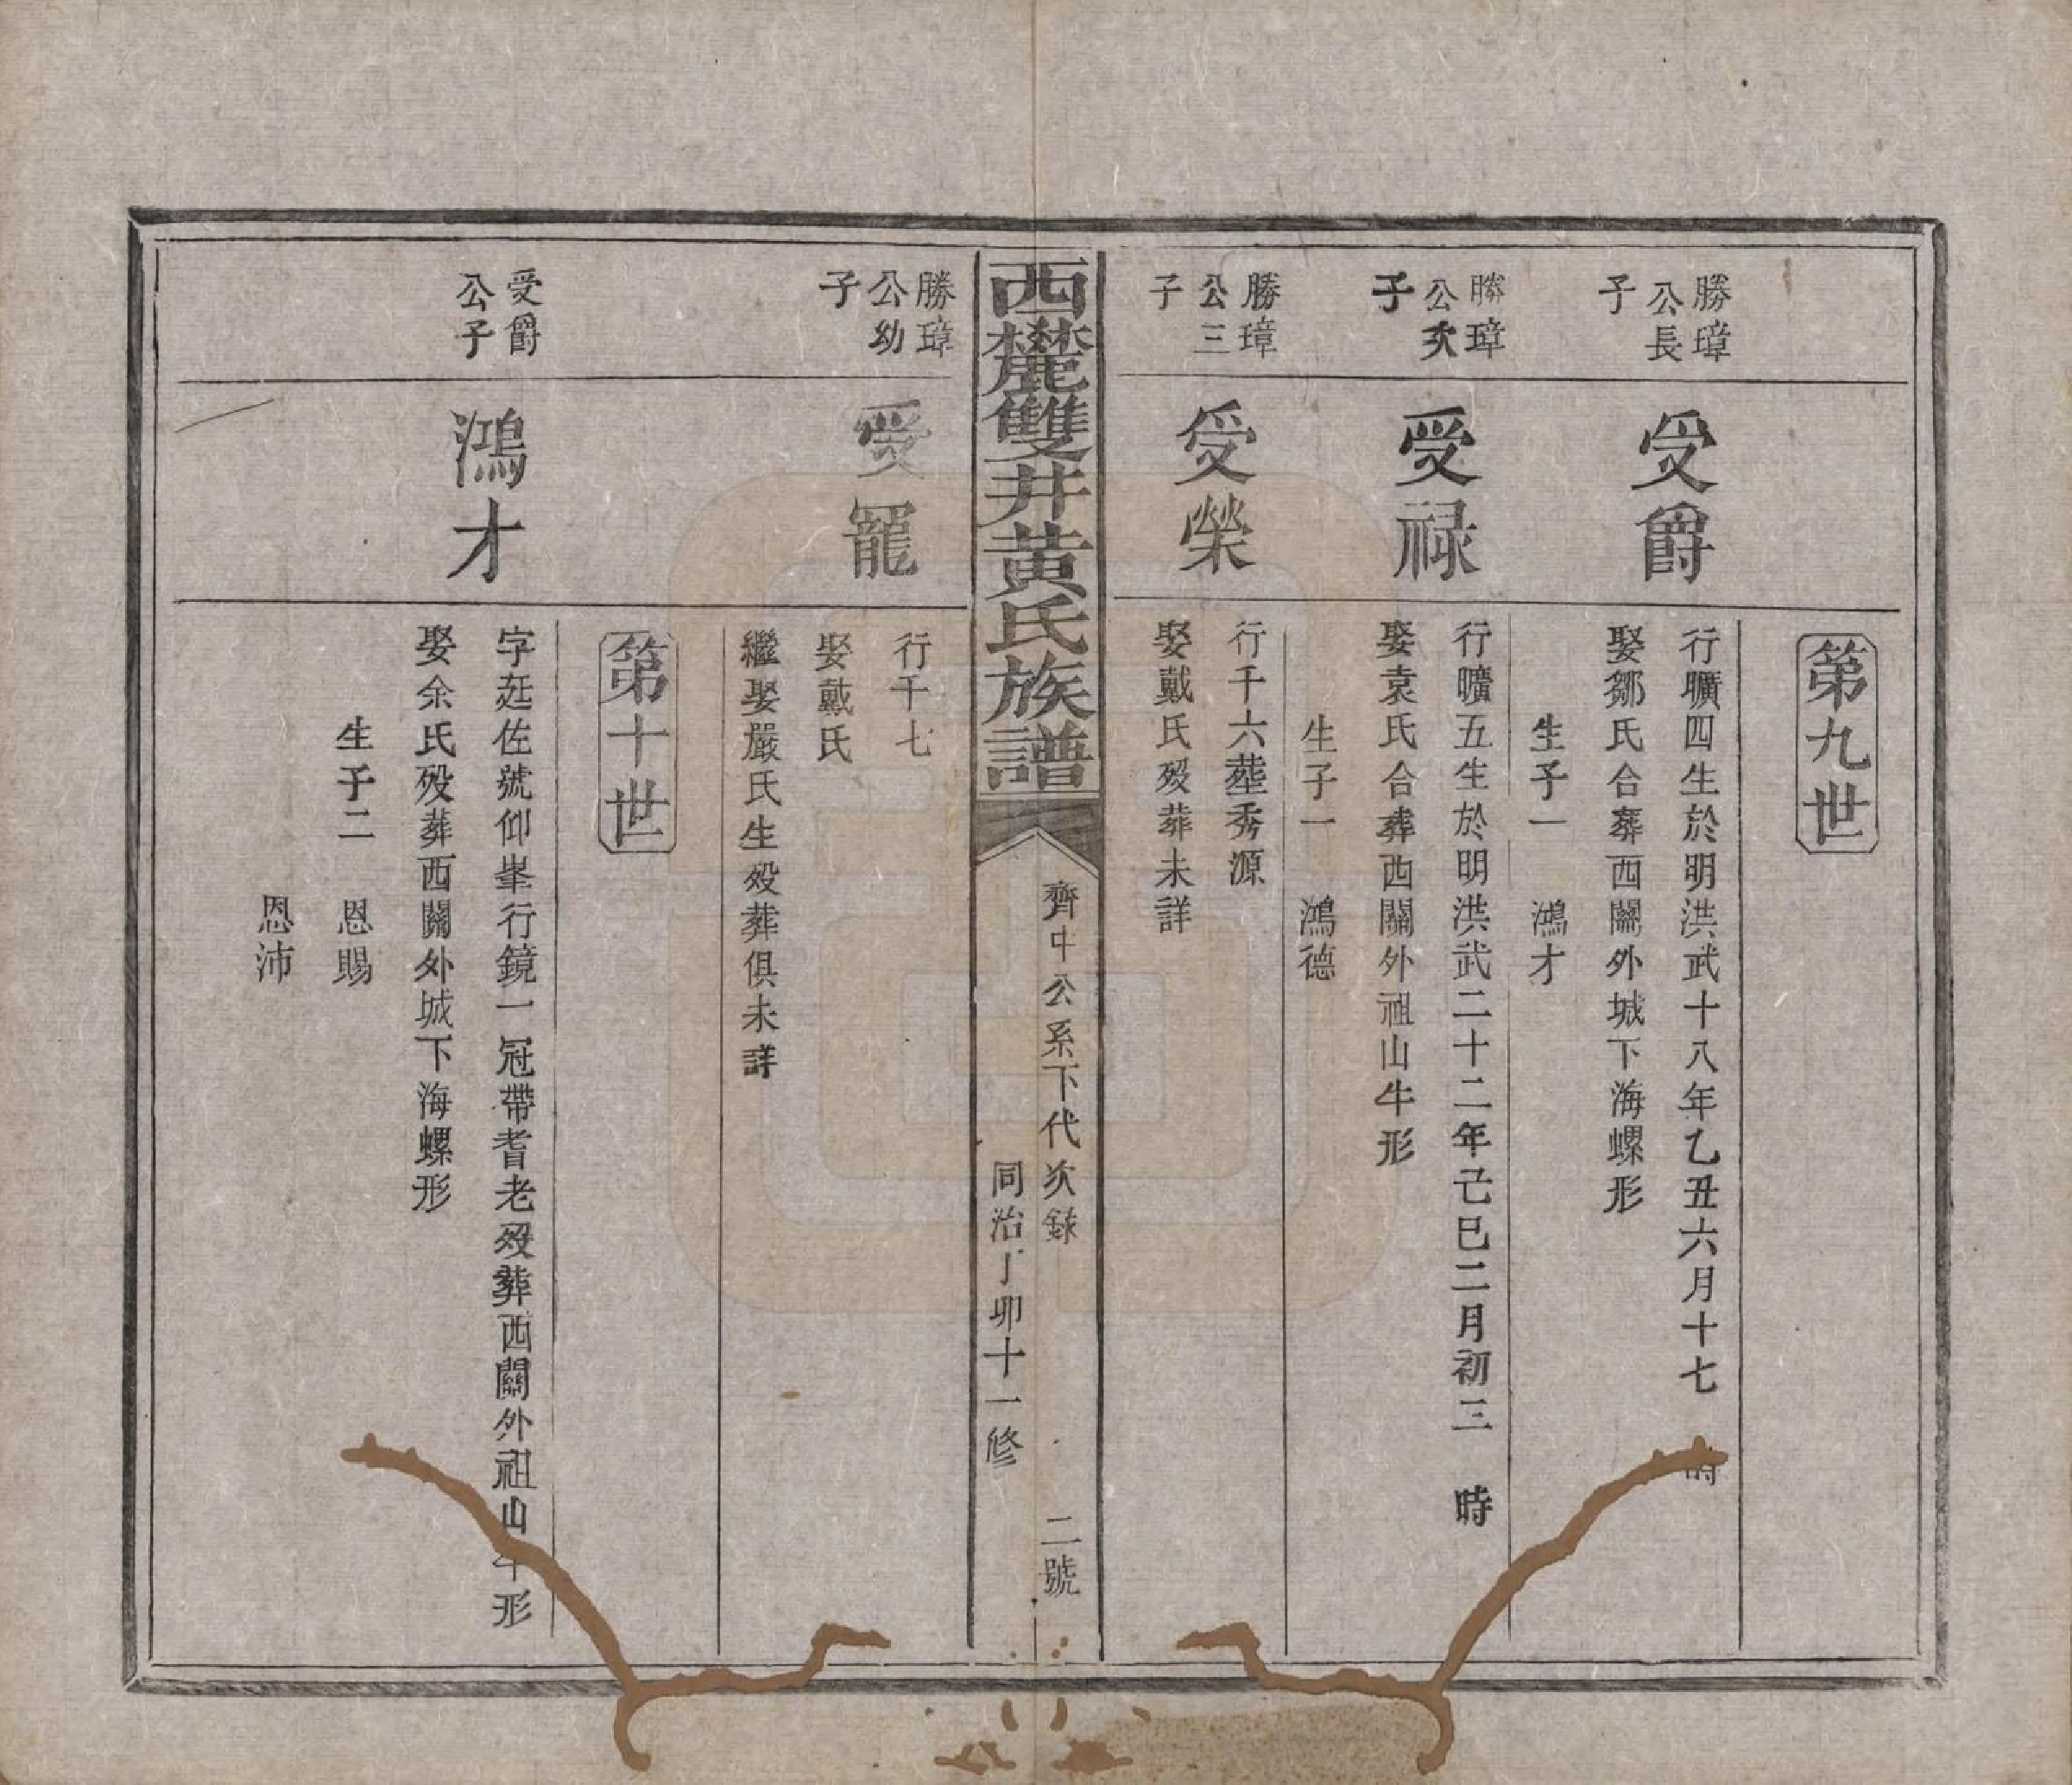 第九世
勝璋
公長
子
受爵
行曠四生於明洪武十八年乙丑六月十七　時
娶鄒氏合葬西關外城下海螺形
生子一　鴻才
勝璋
公次
子
受祿
行曠五生於明洪武二十二年己巳二月初三　時
娶袁氏合葬西關外祖山牛形
生子一　鴻德
勝璋
公三
子
受榮
行千六葬秀源
娶戴氏歿葬未詳
西麓雙井黃氏族譜
齊中公系下代次錄　二號
同治丁卯十一修
勝璋
公幼
子
受寵
行千七
娶戴氏
繼娶嚴氏生歿葬俱未詳
第十世
受爵
公子
鴻才
字廷佐號仰峯行鏡一冠帶耆老歿葬西關外祖山牛形
娶余氏歿葬西關外城下海螺形
生子二　恩賜
恩沛